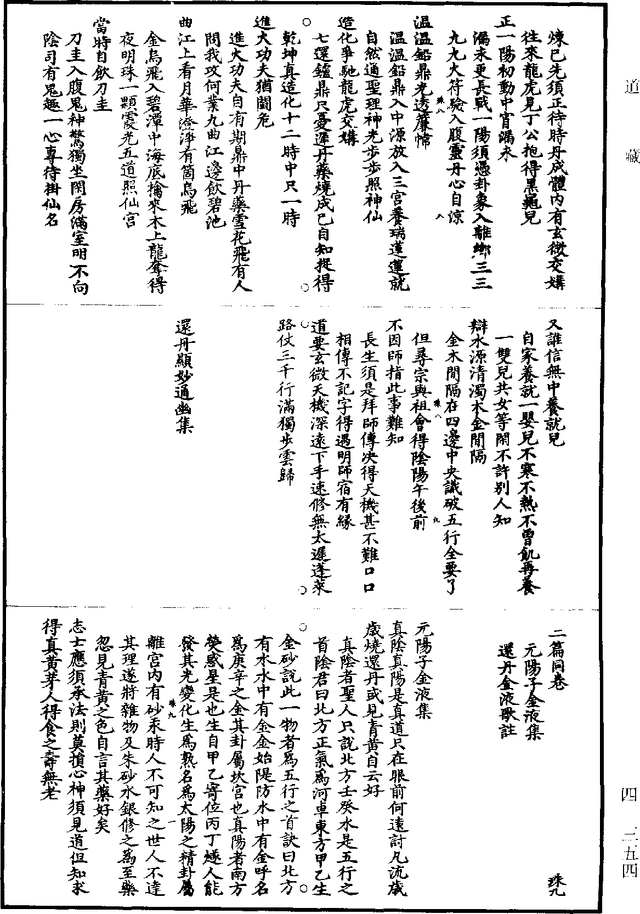 道藏
煉己先須正待時丹成體內有玄微交媾
往來龍虎見丁公抱得黑龜兒
正一陽初動中宵漏永
漏永更長戰一陽須憑卦象入離鄉三三
九九大符驗入腹靈丹心自涼
溫溫鉛鼎光透簾幃
溫溫鉛鼎入中源放入三宮養瑞蓮蓮就
自然通聖理神光步步照神仙
造化爭馳龍虎交媾
七還鑪鼎只憂遲丹藥燒成已自知捉得
乾坤真造化十二時中只一時
進火功夫猶鬪危
進火功夫自有期鼎中丹藥雪花飛有人
問我攻何業九曲江邊飲碧池
曲江上看月華澄淨有箇烏飛
金烏飛入碧潭中海底擒來木上龍奪得
夜明珠一顆霞光五道照仙宮
當時自飲刀圭
刀圭入腹鬼神驚獨坐閑房滿室明不向
陰司有鬼趣一心專待掛仙名
又誰信無中養就兒
自家養就一嬰兒不寒不熱不曾飢再養
一雙兒共女等閑不許別人知
辯水源清濁木金間隔
金木間隔在四邊中央識破五行全要了
但尋宗與祖會得陰陽午後前
不因師指此事難知
長生須是拜師傳决得天機甚不難口口
相傳不記字得遇明師宿有緣
道要玄微天機深遠下手速修無太遲蓬萊
路仗三千行滿獨步雲歸
還丹顯妙通幽集
二篇同卷
元陽子金液集
還丹金液歌註
珠九
元陽子金液集
真陰真陽是真道只在眼前何遠討凡流歲
歲燒還丹或見青黃自云好
真陰者聖人只說北方壬癸水是五行之
首陰君曰北方正氣為河車東方甲乙生
金砂說此一物者為五行之首訣曰北方
有水水中有金金始隄防水中有金呼名
為庚辛之金其卦屬坎宮也真陽者南方
熒惑星是也生自甲乙寄位丙丁燧人能
發其光變化生為熟名為太陽之精卦屬
離宮內有砂汞時人不可知之世人不達
其理遂將雜物及朱砂水銀修之為至藥
忽見青黃之色自言其藥好矣
志士應須承法則莫搶心神須見道但知求
得真黃芽人得食之壽無老
四三五四